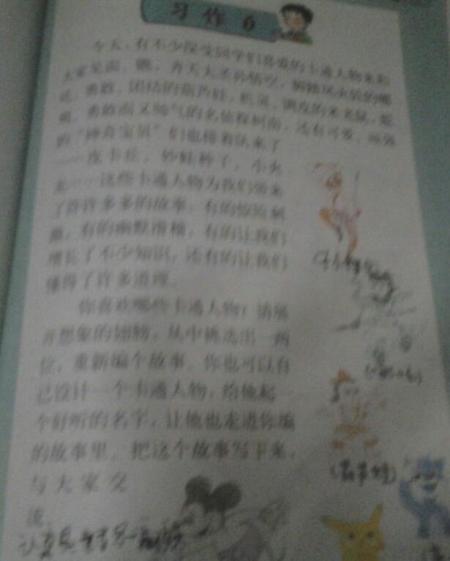 习作 6
今天，有不少深受同学们喜爱的卡通人物来和
大家见面。瞧，齐天大圣孙悟空，脚踏风火轮的哪
吒，勇敢、团结的葫芦娃，机灵、调皮的米老鼠，聪
明、勇敢而又帅气的名侦探柯南，还有可爱、
的“神奇宝贝”们也排着队来了
——皮卡丘，妙蛙种子，小火
龙……这些卡通人物为我们带来
了许许多多的故事，有的惊险刺
激，有的幽默滑稽，有的让我们
增长了不少知识，还有的让我们
懂得了许多道理。
你喜欢哪些卡通人物？请展
开想象的翅膀，从中挑选出一两
位，重新编个故事。你也可以自
己设计一个卡通人物，给他起一
个好听的名字，让他也走进你编
的故事里。把这个故事写下来，
与大家交
流。